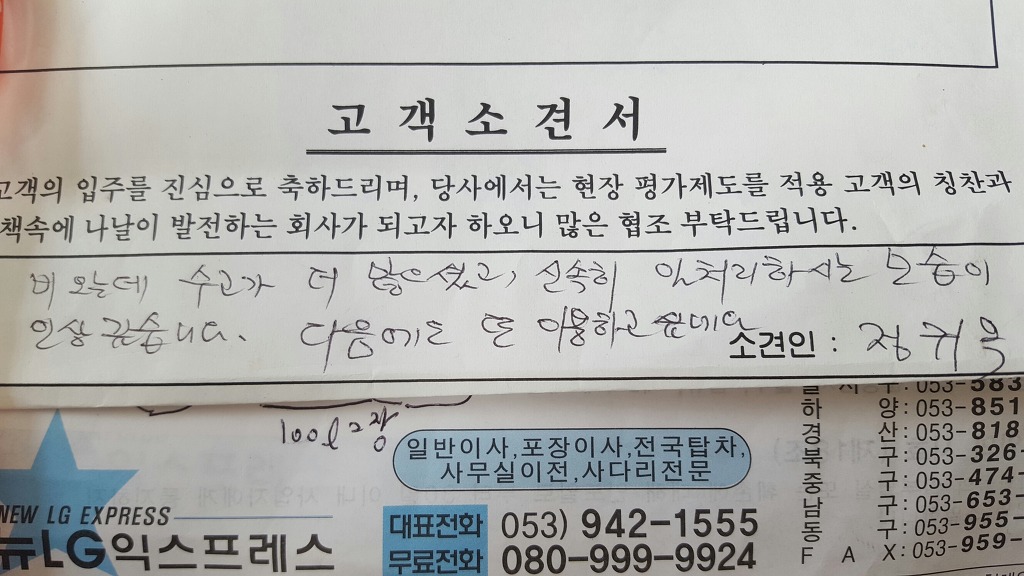 고객소견서
고객의 입주를 진심으로 축하드리며, 당사에서는 현장 평가제도를 적용 고객의 칭찬과
책속에 나날이 발전하는 회사가 되고자 하오니 많은 협조 부탁드립니다.
비 오는데 수고가 더 많으셨고, 신속히 일처리하시는 모습이
인상 깊습니다. 다음에도 또 이용하고 싶네요
소견인 : 정귀옥
100ℓ 2장
일반이사,포장이사,전국탑차,
사무실이전,사다리전문
NEW LG EXPRESS
뉴LG익스프레스
대표전화 053) 942-1555
무료전화 080-999-9924
구: 053-583
하 양: 053-851
경 산: 053-818
북 구: 053-326-
중 구: 053-474-
남 구: 053-653-
동 구: 053-955-
F A X: 053-959-